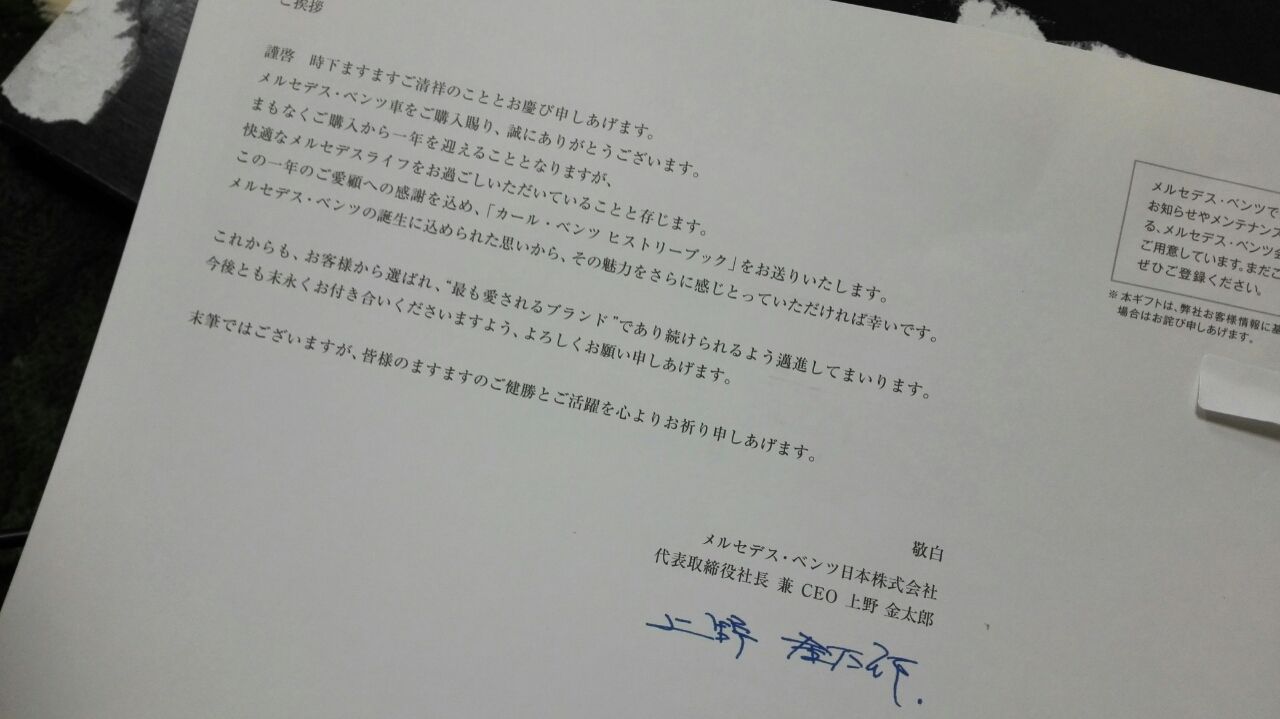 ご挨拶
謹啓 時下ますますご清祥のこととお慶び申しあげます。
メルセデス・ベンツ車をご購入賜り、誠にありがとうございます。
まもなくご購入から一年を迎えることとなりますが、
快適なメルセデスライフをお過ごしいただいていることと存じます。
この一年のご愛顧への感謝を込め、「カール・ベンツ ヒストリーブック」をお送りいたします。
メルセデス・ベンツの誕生に込められた思いから、その魅力をさらに感じとっていただければ幸いです。
これからも、お客様から選ばれ、“最も愛されるブランド”であり続けられるよう邁進してまいります。
今後とも末永くお付き合いくださいますよう、よろしくお願い申しあげます。
末筆ではございますが、皆様のますますのご健勝とご活躍を心よりお祈り申しあげます。
敬白
メルセデス・ベンツ日本株式会社
代表取締役社長 兼 CEO 上野 金太郎
上野 金太郎
メルセデス・ベンツで
お知らせやメンテナンス
る、メルセデス・ベンツ会
ご用意しています。まだご
ぜひご登録ください。
※本ギフトは、弊社お客様情報に基
場合はお詫び申しあげます。